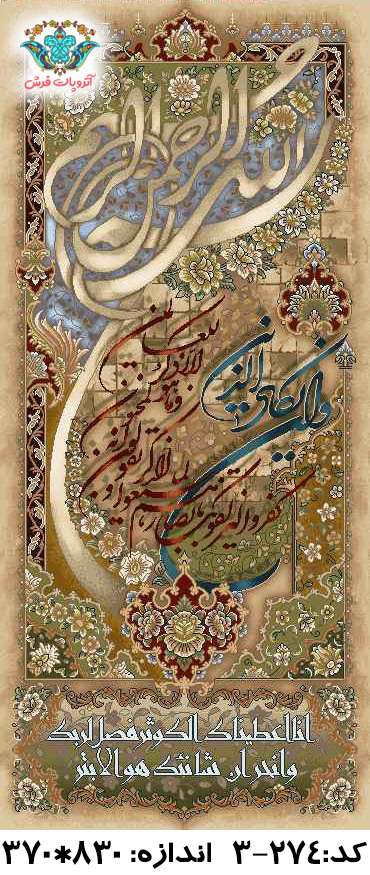 آتروپات فرش
بسم الله الرحمن الرحیم
وان یکاد الذین
کفروا لیزلقونک بابصارهم
لما سمعوا الذکر و یقولون
انه لمجنون
و ما هو الا ذکر
للعالمین
انا اعطیناک الکوثر فصل لربک
وانحر ان شانئک هو الابتر
کد:۲۷۴-۳ اندازه: ۸۳۰*۳۷۰